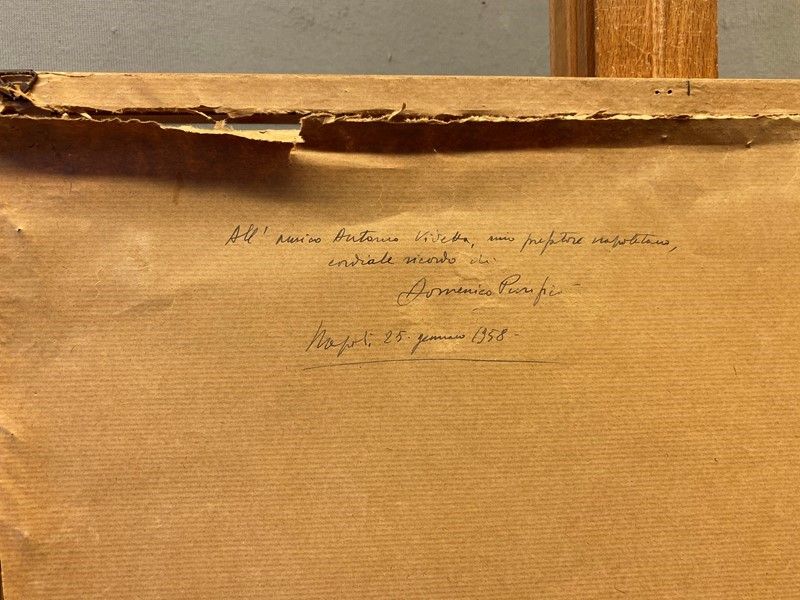 All' amico Antonio Videtta, mio prefatore napoletano,
cordiale ricordo di
Domenico Purificato
Napoli, 25 gennaio 1958